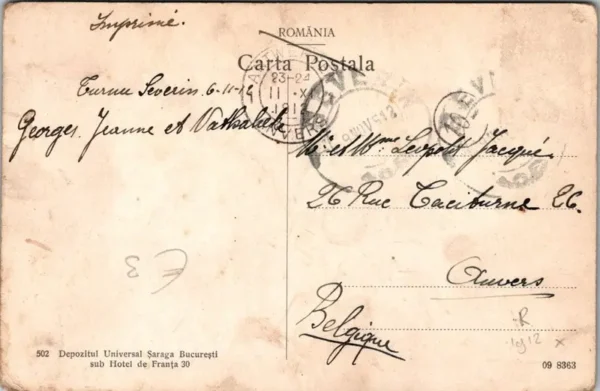 Imprimé.
ROMÂNIA
Carta Postala
Turnu Severin 6-11-12
Georges, Jeanne et
ANTWERPEN
23-24
11 XI
1912
ANVERS
SEVERIN
NOV 912
M. et Mme Leopold Jacqué.
26 Rue Taciturne 26.
Anvers
Belgique
£3
R
1912 x
502 Depozitul Universal Șaraga București
sub Hotel de Franța 30
09 8363